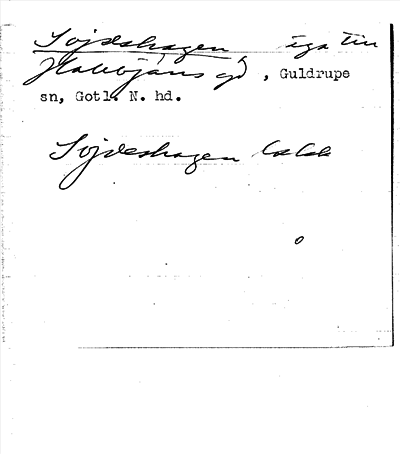 Sojdeshagen, äga till
Hallbjäns gd, Guldrupe
sn, Gotl. N. hd.
Sojdeshagen